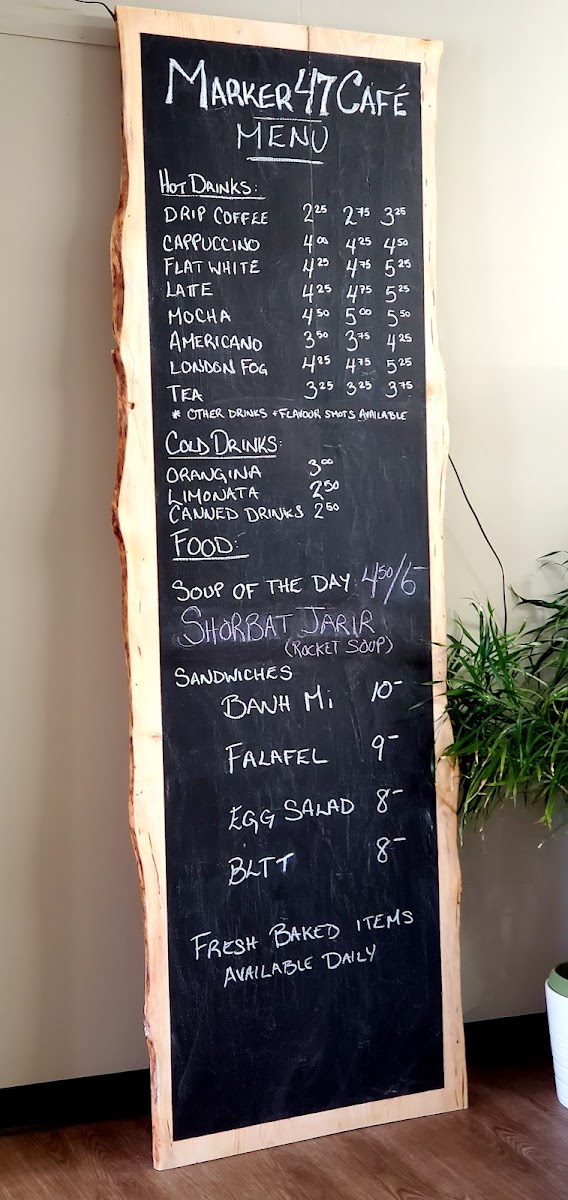 MARKER 47 CAFÉ
MENU
HOT DRINKS:
DRIP COFFEE 2 25 2 75 3 25
CAPPUCCINO 4 00 4 25 4 50
FLAT WHITE 4 25 4 75 5 25
LATTE 4 25 4 75 5 25
MOCHA 4 50 5 00 5 50
AMERICANO 3 50 3 75 4 25
LONDON FOG 4 25 4 75 5 25
TEA 3 25 3 25 3 75
* OTHER DRINKS + FLAVOUR SHOTS AVAILABLE
COLD DRINKS:
ORANGINA 3 00
LIMONATA 2 50
CANNED DRINKS 2 50
FOOD:
SOUP OF THE DAY: 4 50/6-
SHORBAT JARJR
(ROCKET SOUP)
SANDWICHES
BANH Mi 10-
FALAFEL 9-
EGG SALAD 8-
BLTT 8-
FRESH BAKED ITEMS
AVAILABLE DAILY